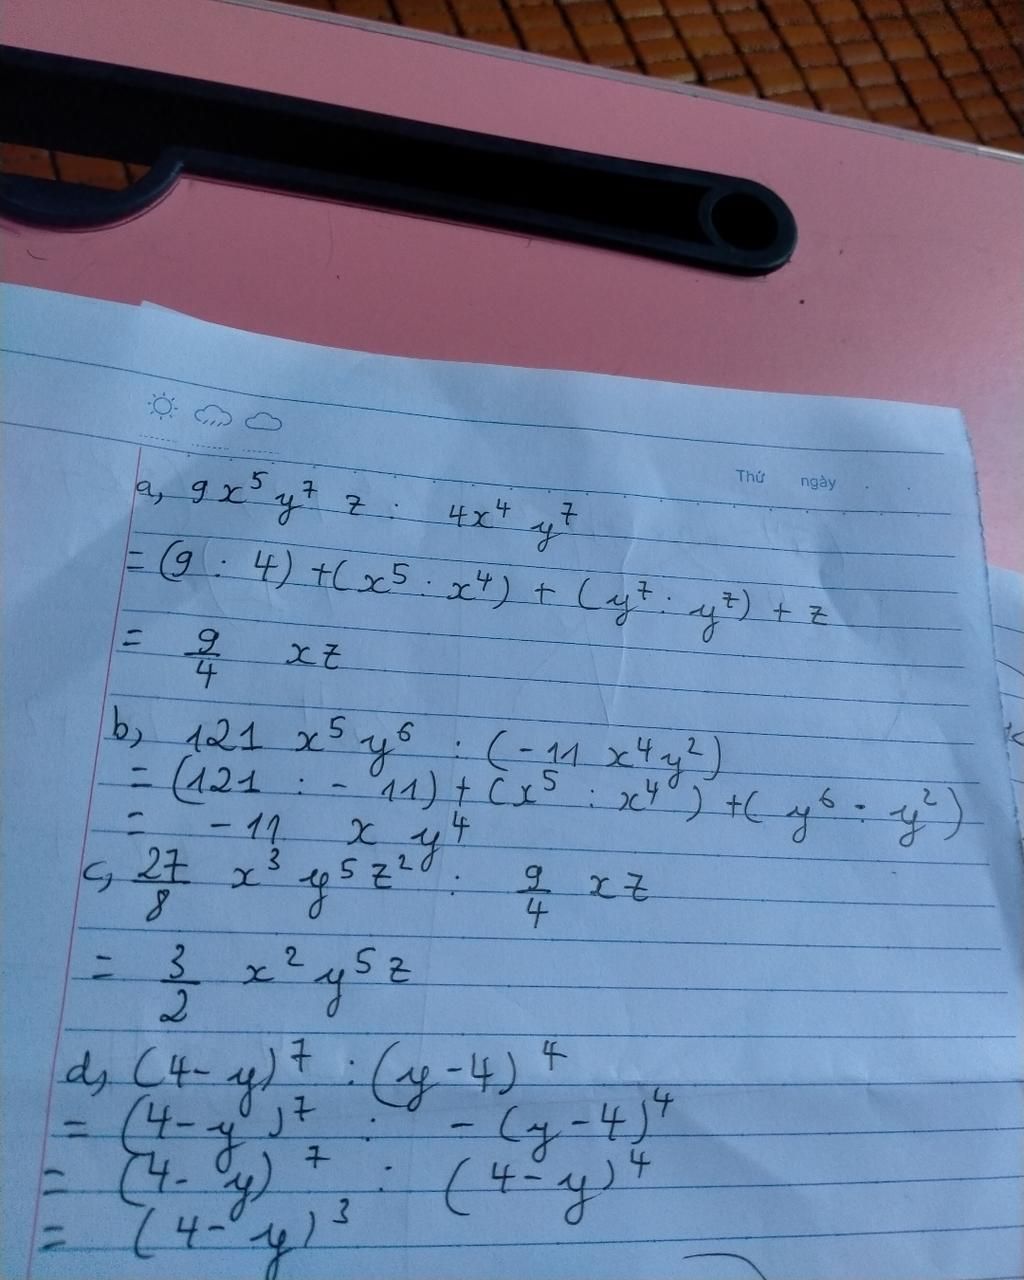 Thứ ngày
a, 9x⁵y⁷ z : 4x⁴ y⁷
= (9 : 4) + (x⁵ : x⁴) + (y⁷ : y⁷) + z
= 9/4 xz
b, 121 x⁵y⁶ : (-11 x⁴y²)
= (121 : - 11) + (x⁵ : x⁴) + (y⁶ : y²)
= -11 x y⁴
c, 27/8 x³ y⁵z² : 9/4 xz
= 3/2 x² y⁵z
d, (4-y)⁷ : (y-4)⁴
= (4-y)⁷ : - (y-4)⁴
= (4-y)⁷ : (4-y)⁴
= (4-y)³